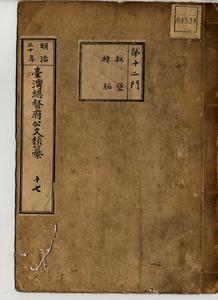 04531
第十二門
拓墾
樟脳
明治三十年
臺灣總督府公文類纂
十七